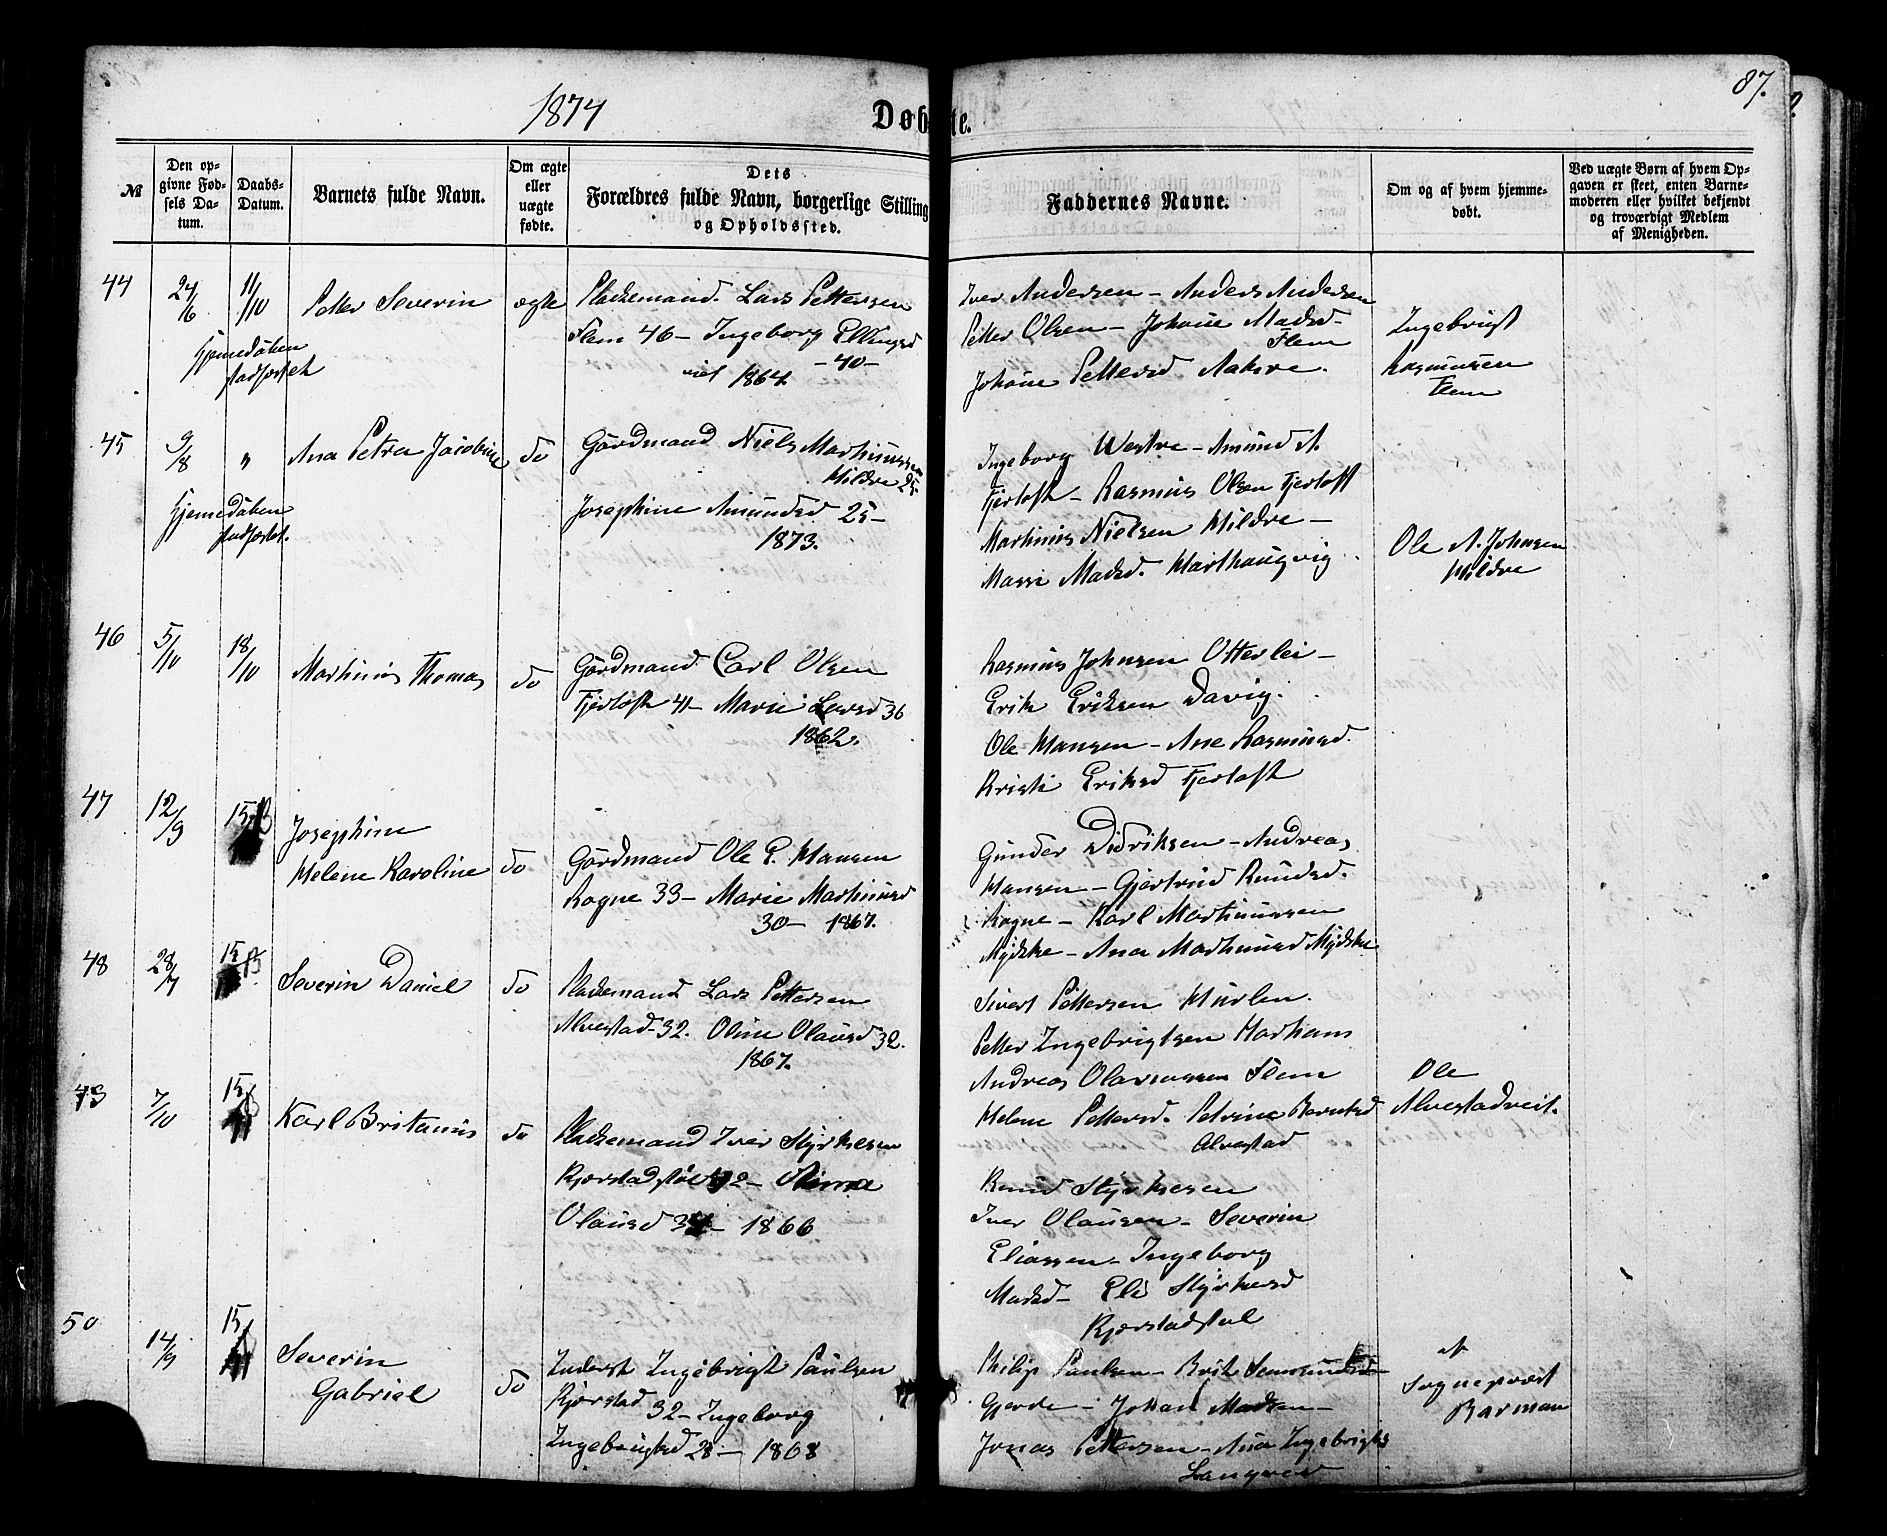 1874
Døbte.
87.
№
Den opgivne Fødsels Datum.
Daabs-Datum.
Barnets fulde Navn.
Om ægte eller uægte fødte.
Dets Forældres fulde Navn, borgerlige Stilling og Opholdssted.
Faddernes Navne.
Om og af hvem hjemmedøbt.
Ved uægte Børn af hvem Opgaven er skeet, enten Barnemoderen eller hvilket bekjendt og troværdigt Medlem af Menigheden.
44 24/6 11/10 Petter Severin ægte
Hjemedøben stadfæstet
Pladsemand Lars Pettersen
Flem 46 – Ingeborg Ellingsd
– 40 –
viet 1864.
Iver Andersen – Anders Andersen
Petter Olsen – Johane Madsd –
Flem
Johane Pettersd Aakre.
Ingebrigt
Rasmusen
Flem
45 9/8 " Ana Petra Jacobine do
Hjemedøben stadfæstet.
Gårdmand Niels Marthinussen
Hildre 25.
Josephine Amundsd 25 –
1873.
Ingeborg Westre – Amund A.
Fjertoft – Rasmus Olsen Fjertoft
Marthinus Nielsen Hildre –
Massi Madsd. Marthaugvig
Ole A. Johnsen
Hildre
46 5/10 18/10 Marthinus Thomas do
Gårdmand Carl Olsen
Fjertoft 41 – Marie Larsd 36
1862.
Rasmus Johnsen Otterlei –
Erik Eriksen Davig.
Ole Hansen – Ane Rasmusd.
Kristi Eriksd Fjertoft
47 12/9 15/ Josephine
Helene Karoline do
Gårdmand Ole P. Hansen
Rogne 33 – Marie Marthinusd
30 – 1867.
Gunder Didriksen – Andreas
Hansen – Gjertrud Knudsd.
Rogne – Karl Marthinussen
Mydske – Ana Marthinusd Mydske
48 28/7 15/ Severin Daniel do
Pladsemand Lars Pettersen
Alvestad – 32. Oline Olausd 32.
1867.
Sivert Pettersen Hurlen.
Petter Ingebrigtsen Harham
Andreas Olaressen Flem
Helene Pettersd. Petrine Berntsd
Alvestad
Ole
Alvestadveit.
49 7/10 15/ Karl Britanus do
Pladsemand Iver Styrkesen
Kjærstadstøl 32 – Stina
Olausd 34 – 1866
Knud Styrkesen
Iver Olausen – Severin
Eliassen – Ingeborg
Madsd – Eli Styrkesd
Kjærstadstøl
50 14/9 15/ Severin
Gabriel do
Inderst Ingebrigt Paulsen
Kjærstad 32 – Ingeborg
Ingebrigtsd 28 – 1868
Philip Paulsen – Brit
Gjerde – Johan Madsen –
Jonas Pettersen – Ana Ingebrigts
Sogneprest
Barman